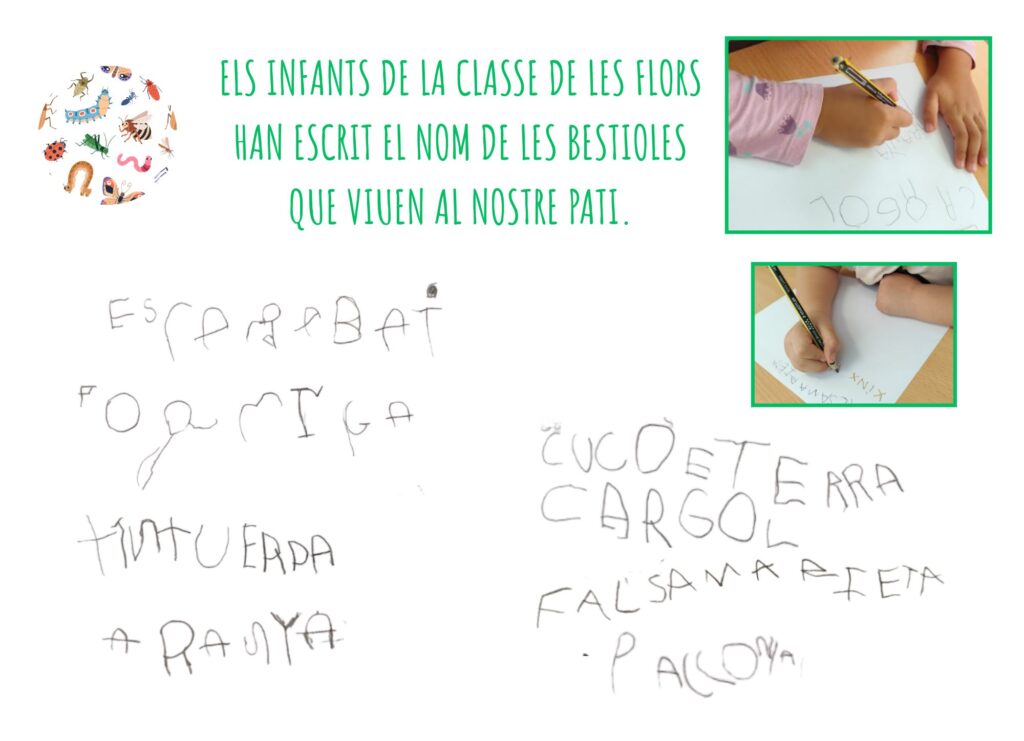 ELS INFANTS DE LA CLASSE DE LES FLORS
HAN ESCRIT EL NOM DE LES BESTIOLES
QUE VIUEN AL NOSTRE PATI.
ESCARABAT
FORMIGA
TINTUERRA
ARANYA
CUCO ETERRA
CARGOL
FALSAMARIETA
CARGOL
XINX